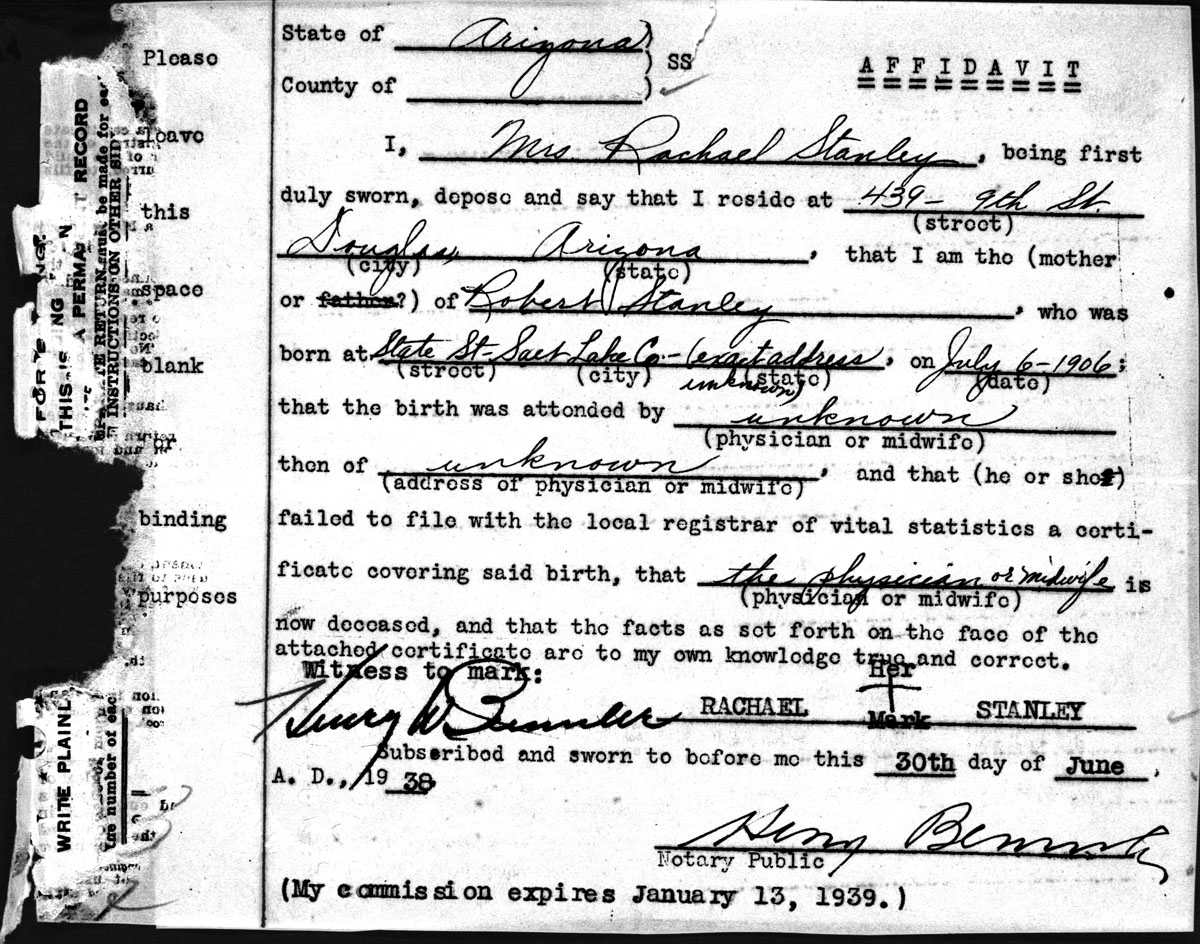 State of Arizona )
) SS
County of )
AFFIDAVIT
I, Mrs. Rachael Stanley, being first
duly sworn, depose and say that I reside at 439 - 9th St.
(street)
Douglas, Arizona, that I am the (mother
(city) (state)
or father?) of Robert Stanley, who was
born at State St - Salt Lake Co. - (exact address, on July 6 - 1906;
(street) (city) unknown) (state) (date)
that the birth was attended by unknown
(physician or midwife)
then of unknown, and that (he or she?)
(address of physician or midwife)
failed to file with the local registrar of vital statistics a certi-
ficate covering said birth, that the physician or midwife is
(physician or midwife)
now deceased, and that the facts as set forth on the face of the
attached certificate are to my own knowledge true and correct.
Witness to mark: Her
RACHAEL STANLEY
Mark
Subscribed and sworn to before me this 30th day of June,
A. D., 19 38
Henry
Notary Public
(My commission expires January 13, 1939.)
Please
leave
this
space
blank
or
binding
purposes
THIS IS A PERMA T RECORD
E INSTRUCTIONS ON OTHER SID
RETURN must be made for eac
WRITE PLAINL
the number of eac